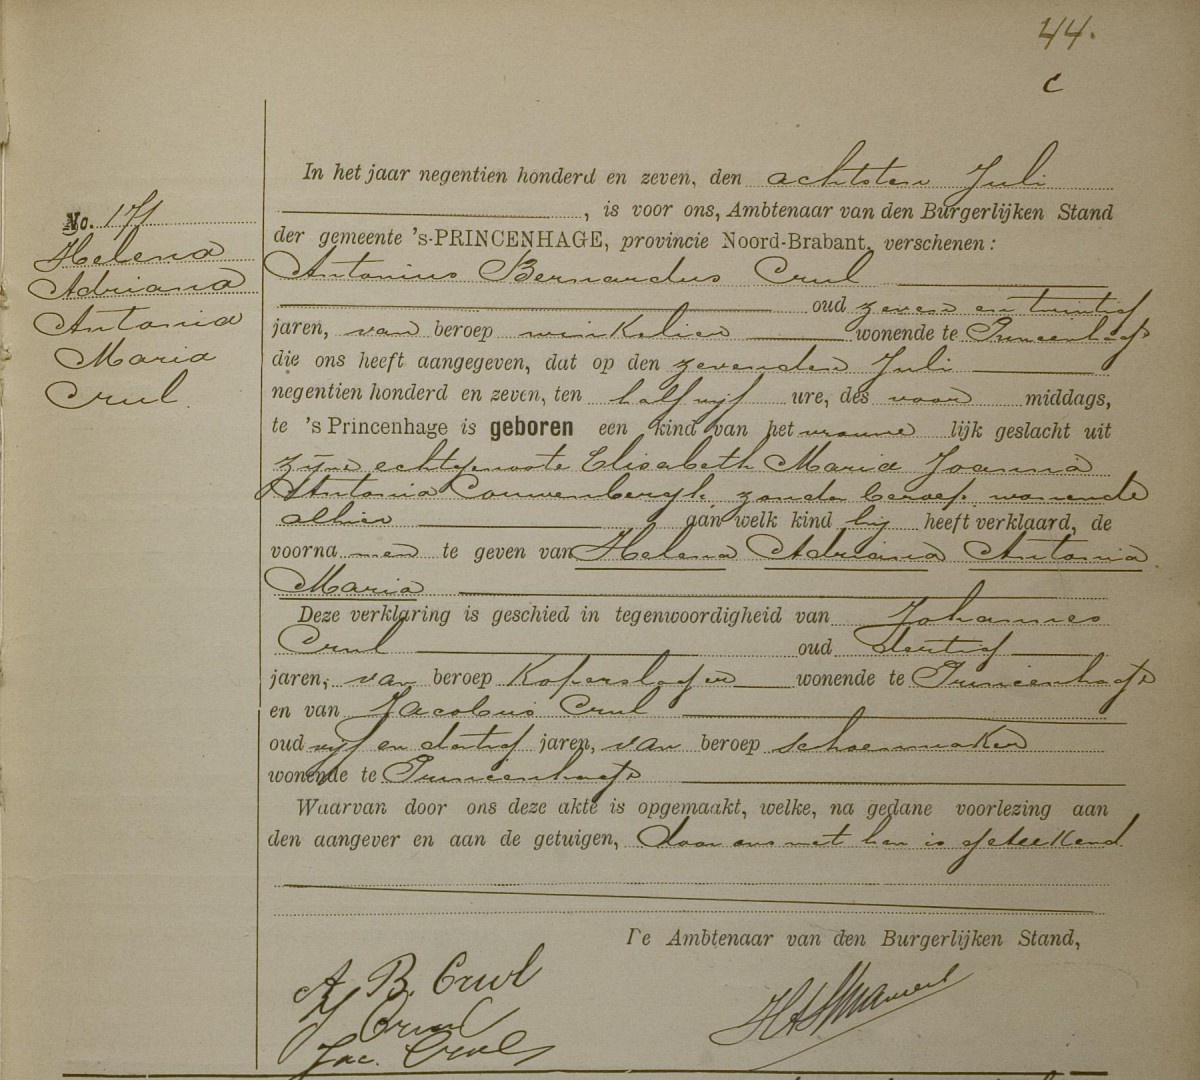 44.
c
In het jaar negentien honderd en zeven, den achtsten Juli
, is voor ons, Ambtenaar van den Burgerlijken Stand
der gemeente 's-PRINCENHAGE, provincie Noord-Brabant, verschenen:
Antonius Bernardus Crul
oud zeven en twintig
jaren, van beroep winkelier wonende te Princenhage
die ons heeft aangegeven, dat op den zevenden Juli
negentien honderd en zeven, ten half vijf ure, des voor middags,
te 's Princenhage is geboren een kind van het vrouwe lijk geslacht uit
zijne echtgenoote Elisabeth Maria Joanna
Antonia Couwenbergh zonder beroep wonende
alhier aan welk kind hij heeft verklaard, de
voorna men te geven van Helena Adriana Antonia
Maria
Deze verklaring is geschied in tegenwoordigheid van Johannes
Crul oud dertig
jaren, van beroep Koperslager wonende te Princenhage
en van Jacobus Crul
oud vijf en dertig jaren, van beroep schoenmaker
wonende te Princenhage
Waarvan door ons deze akte is opgemaakt, welke, na gedane voorlezing aan
den aangever en aan de getuigen, door ons met hen is geteekend
De Ambtenaar van den Burgerlijken Stand,
A. B. Crul
J Crul
Jac. Crul
No. 171
Helena
Adriana
Antonia
Maria
Crul.